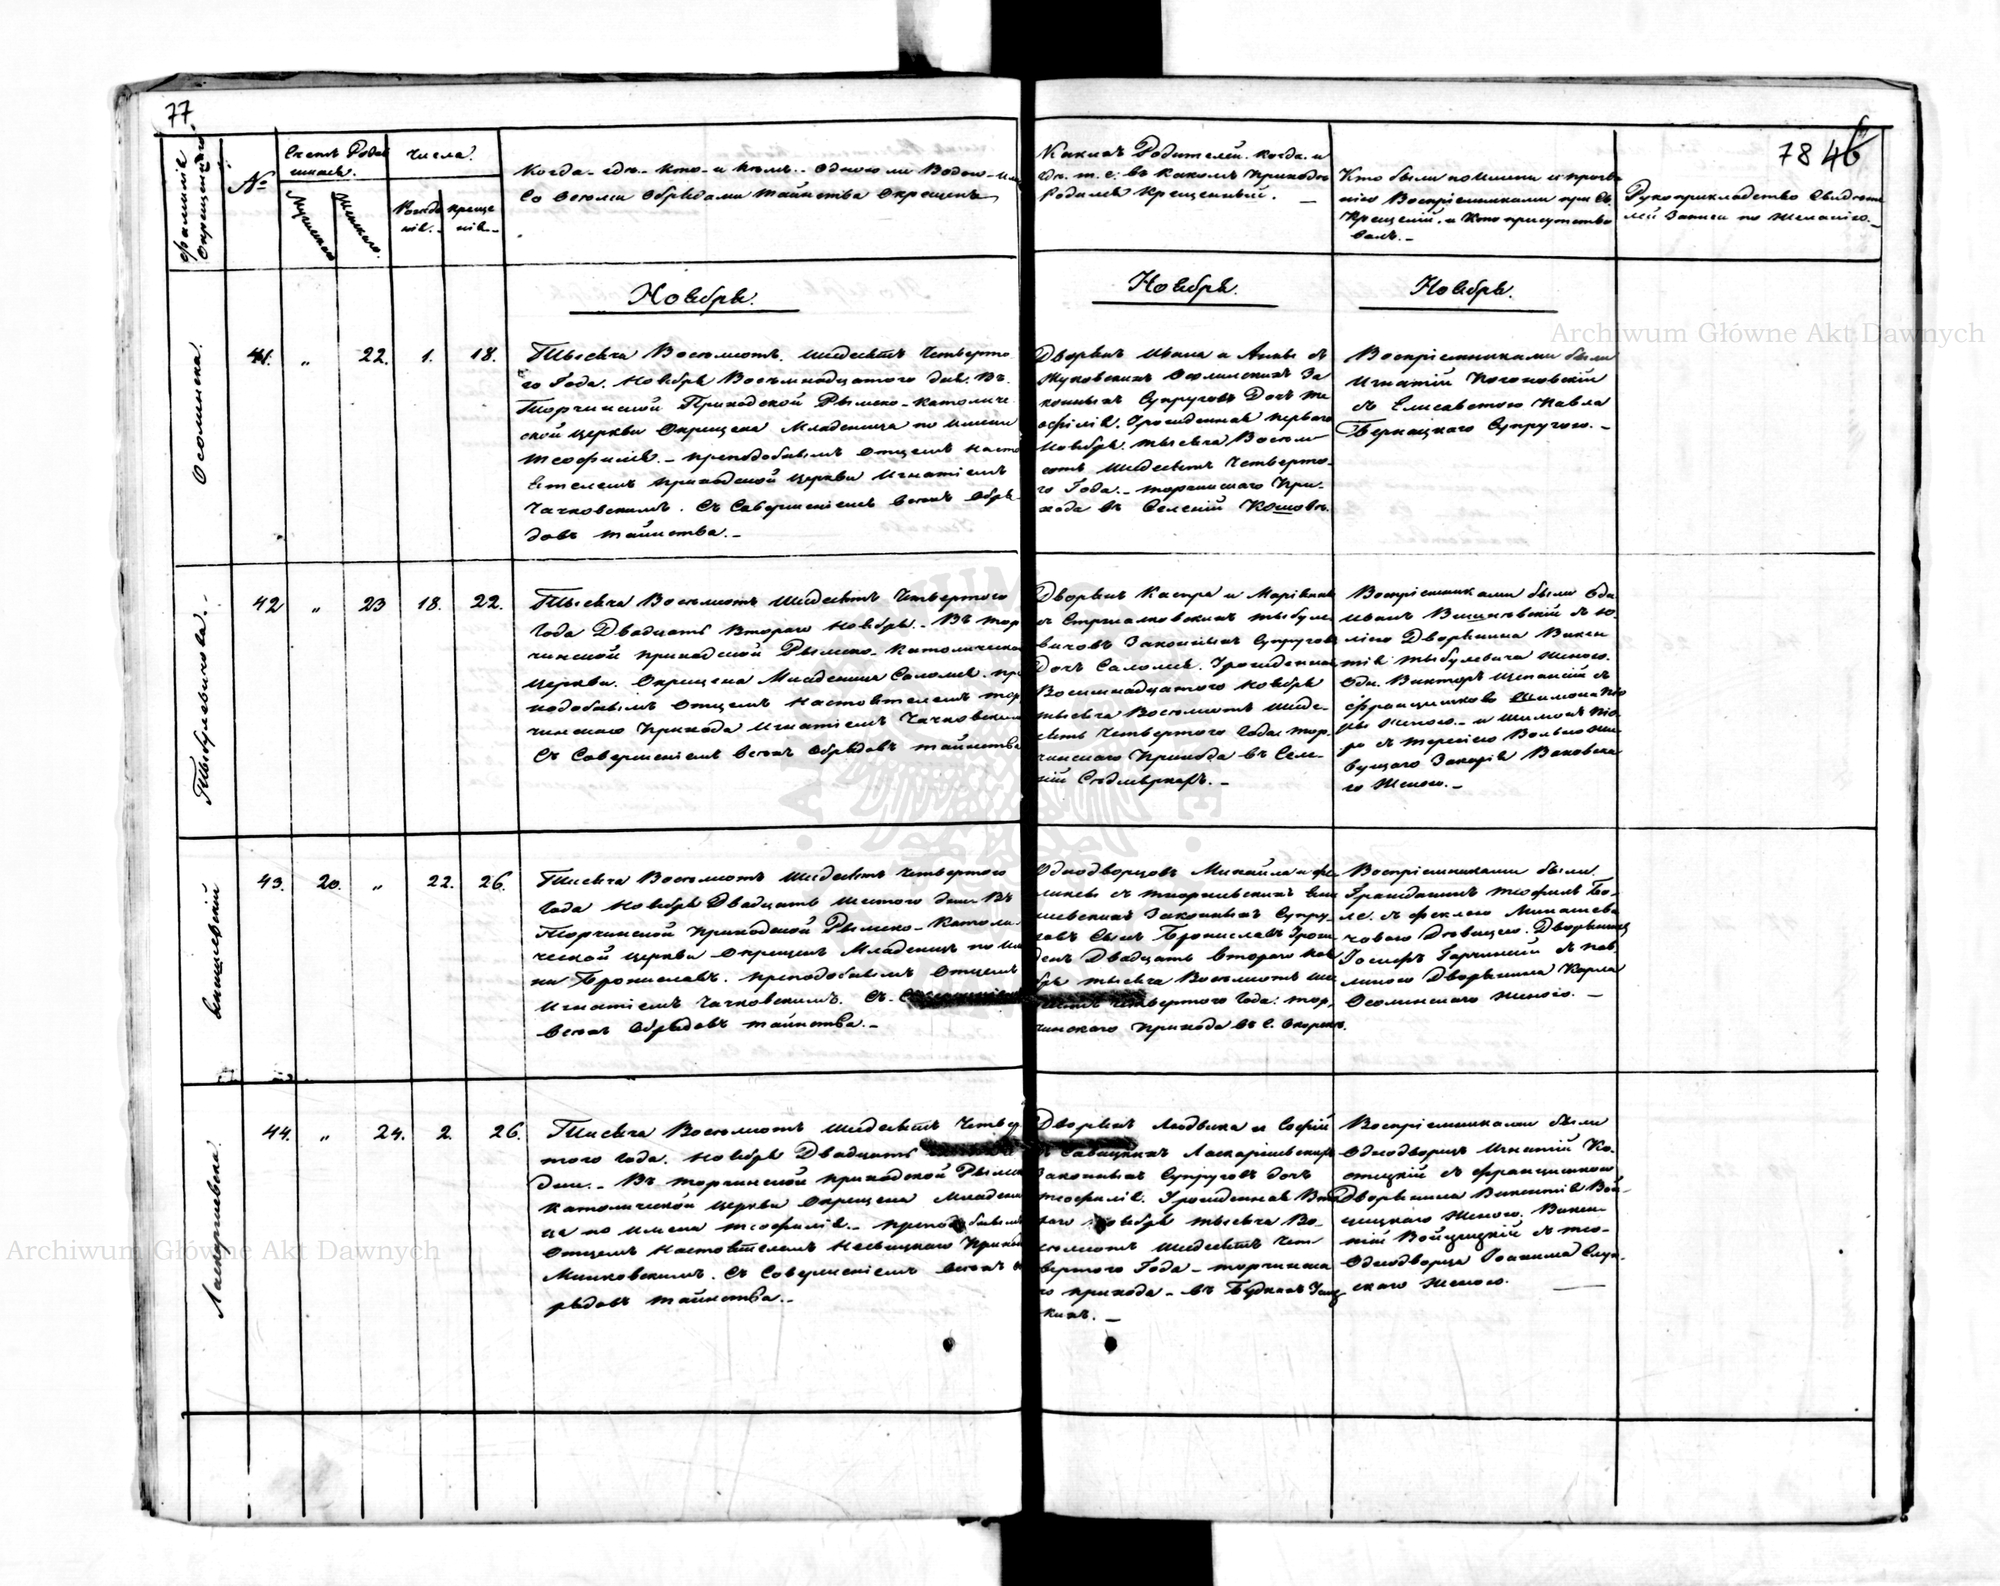 77
78 46
Фамилія Окрещеннаго.
№
Счетъ Родив
шихся.
Мужескаго
Женскаго.
Числа.
Рожде
нія.
Креще
нія.
Когда. гдѣ. кто. и кѣмъ. Одною ли Водою. или
Со всѣми Обрядами таинства Окрещенъ
Какихъ Родителей. когда. и
гдѣ. т. е. въ какомъ Приходѣ
Родился Крещенный. —
Кто были по имени и прозва
нію Воспріемниками при Св.
Крещеніи. и Кто присутство
валъ. —
Рукоприкладство Свидѣте
лей Записи по желанію. —
Ноябрь.
Ноябрь.
Ноябрь.
Осолинска.
41. „ 22. 1. 18.
Тысяча Восемьсотъ шестдесятъ Четверта
го Года. Ноября Восемнадцатого дня. Въ
Торчинской Приходской Рымско-Католиче
ской церкви Окрещена Младеница по имени
Теофилія. — преподобнымъ Отцемъ Насто
ятелемъ приходской церкви Игнатіемъ
Чачковскимъ. Съ Совершеніемъ всѣхъ Обря
довъ таинства. —
Дворянъ Ивана и Анны съ
Жуковскихъ Осолинскихъ За
конныхъ Супруговъ Дочь Те
офилія. Урожденная первого
Ноября тысяча Восемь
сотъ шестдесятъ Четверто
го Года. — торчинского При
хода въ Селеніи Кошовѣ.
Воспріемниками были
Игнатій Рогоковскій
съ Елисаветою Павла
Бернацкаго Супругою. —
Тыбулевичова. —
42 „ 23 18. 22.
Тысяча Восемьсотъ шестдесятъ Четвертого
Года Двадцать Втораго Ноября. — Въ тор
чинской приходской Рымско-Католической
церкви. Окрещена Младеница Саломея. пре
подобнымъ Отцемъ Настоятелемъ тор
чинского Прихода Игнатіемъ Чачковским
Съ Совершеніемъ всѣхъ Обрядовъ таинства
Дворянъ Каспра и Маріянны
съ Стржалковскихъ тыбуле
вичовъ Законныхъ Супругов
Дочь Саломея. Урожденна
Восемнадцатого Ноября
тысяча Восемьсотъ шесть
сятъ Четвертого Года тор
чинского Прихода въ Селе
ніи Садмяркахъ. —
Воспріемниками были
Вишневскій съ Ю
ліею Дворянина Викен
тія Тыбулевича женою.
Викторъ съ
Францишкою Шимона
женою. — и Шимонъ
съ Терезіею
Закарія
го Женою. —
Вишневскій
43. 20. „ 22. 26.
Тисяча Восемьсотъ шестдесятъ Четвертого
Года Ноября Двадцать шестого дня Въ
Торчинской приходской Рымско-Католи
ческой церкви Окрещенъ Младенецъ по им
ни Брониславъ. преподобнымъ Отцемъ
Игнатіемъ Чачковскимъ. Съ Совершеніем
всѣхъ Обрядовъ таинства. —
Однодворцовъ Михаила и Фе
шневскихъ Законныхъ Супру
говъ Сынъ Брониславъ Урож
денъ Двадцать Второго Ноя
бря тысяча Восемьсотъ ше
сятъ Четвертого Года. тор
чинского Прихода въ С.
Воспріемниками были
Гражданинъ Теофиль
съ Феклою
Дворянинъ
Іосифъ съ Пав
линою Дворянина Карла
Осолинскаго женою. —
Ласкаржевска.
44. „ 24. 2. 26.
Тисяча Восемьсотъ шестдесятъ Четвер
того Года. Ноября Двадцать
дня. — Въ торчинской приходской Рымск
Католической церкви Окрещена Младени
ца по имени Теофилія. — преподобнымъ
Отцемъ Настоятелемъ Прихо
Минковскимъ. Съ Совершеніемъ всѣхъ об
рядовъ таинства. —
Дворянъ Людвика и Софіи
съ Савицкихъ Ласкаржевских
Законныхъ Супруговъ дочь
Теофилія. Урожденная Вто
раго Ноября тысяча Во
семьсотъ шестдесятъ Чет
вертого Года — торчинска
го прихода — въ Будкахъ
кихъ. —
Воспріемниками были
Однодворецъ Игнатій
съ Францишкою
Дворянина Викентія Вой
цицкаго Женою. Викен
тій Войцицкій съ
Однодворца
скаго женою. —
Archiwum Główne Akt Dawnych
Archiwum Główne Akt Dawnych